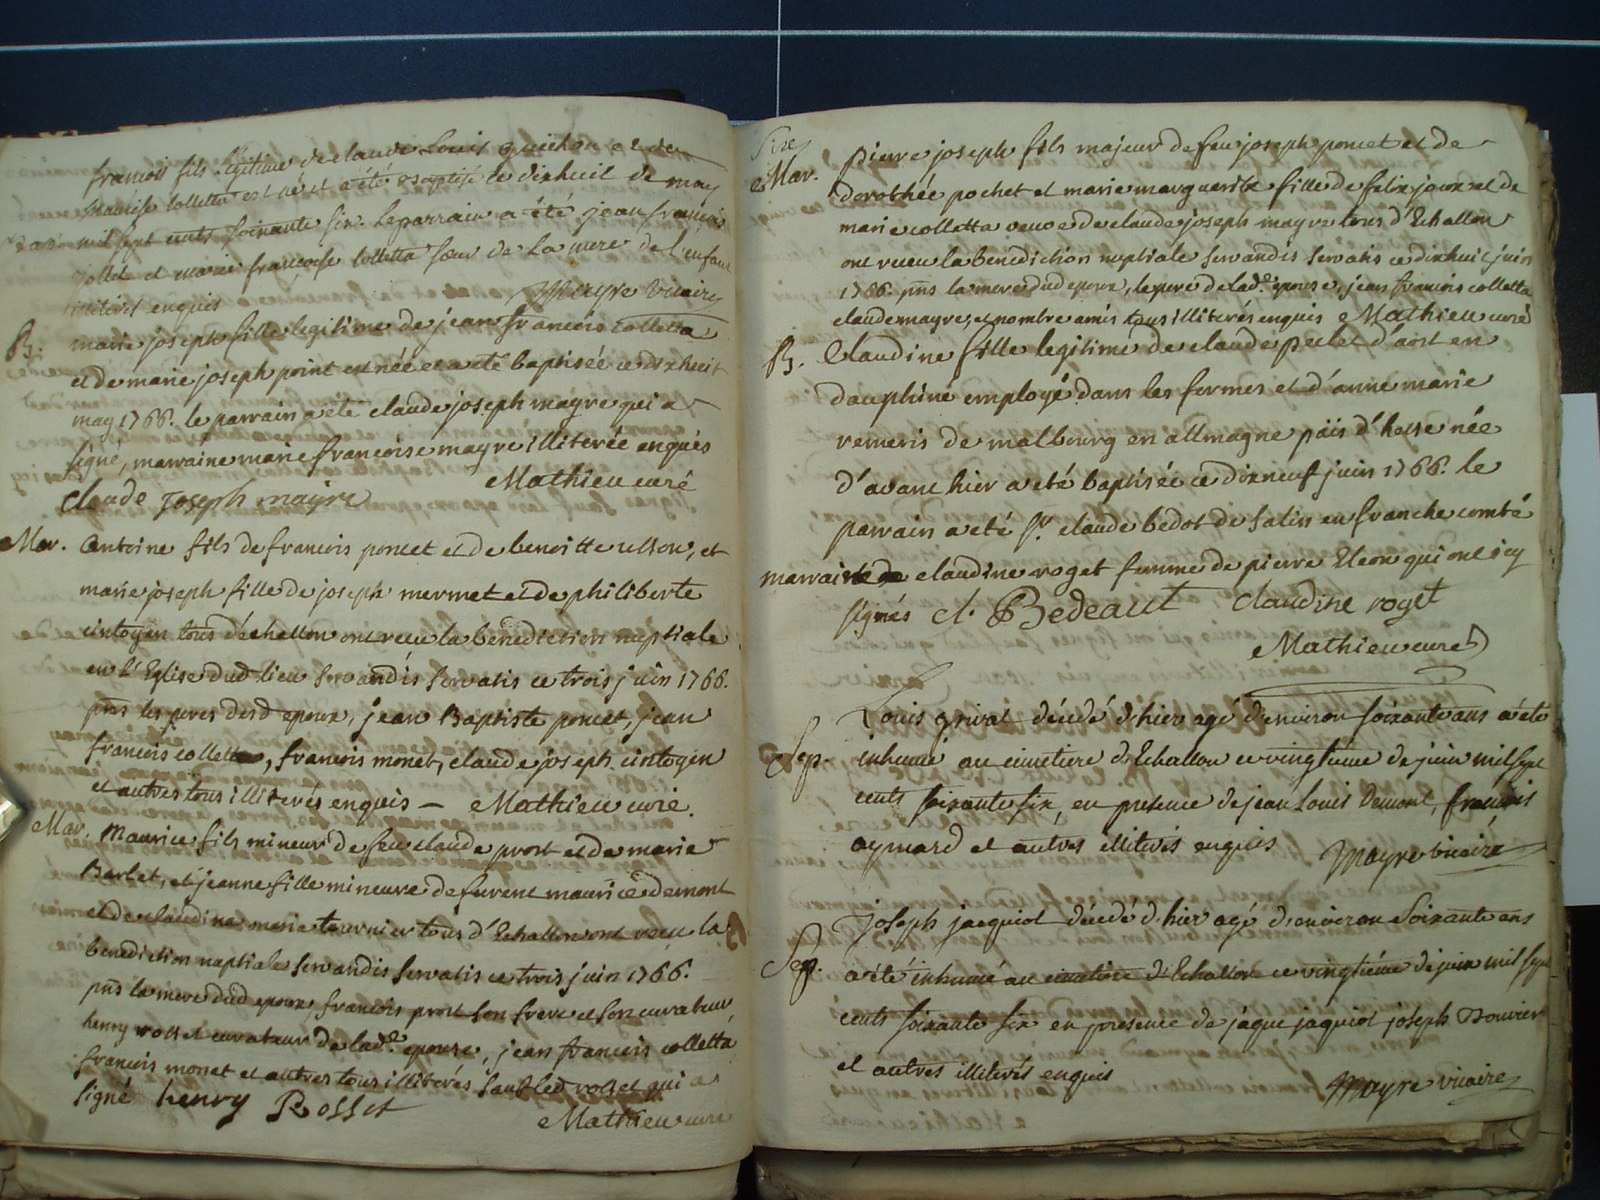 françois fils legitime de claude Louis guichon et de
maurise colletta est né et a été baptisé le dixhuit de may
mil sept cents soixante six. le parrain a été jean françois
jollet et marie françoise colletta sœur de la mere de l'enfant
illiterés enquis Mayre vicaire
B. marie joseph fille legitime de jean francois colletta
et de marie joseph point est née et a eté baptisée ce dixhuit
may 1766. le parrain a eté claude joseph mayre qui a
signé, marraine marie françoise mayre illiterée enquis
Mathieu curé
claude joseph mayre
Mar. Antoine fils de francois poncet et de benoitte, et
marie joseph fille de joseph mermet et de philiberte
cintoyen tous d'échallon ont receu la benediction nuptiale
en l'Eglise dud lieu servandis servatis ce trois juin 1766.
pns les peres desd epoux, jean Baptiste poncet, jean
francois colletta, francois monet, claude joseph cintoyen
et autres tous illiterés enquis – Mathieu curé.
Mar. Maurice fils mineur de feu claude prost et de marie
Barlet, et jeanne fille mineure de furent maurice demont
et de claudine marie tournier tous d'Echallon ont receu la
benediction nuptiale servandis servatis ce trois juin 1766.
pns la mere dud epoux, francois prost son frere et son curateur,
henry rosset curateur de lad.e epouse, jean francois colletta
francois monet et autres tous illiterés sauf led rosset qui a
signé henry Rosset
Mathieu curé
Mar. pierre joseph fils majeur de feu joseph poncet et de
dorothée pochet et marie marguerite fille de felix joux et de
marie colletta veuve de claude joseph mayre tous d'Echallon
ont receu la benediction nuptiale servandis servatis ce dixhuit juin
1766. pns la mere dud epoux, le pere de lad.e epouse, jean francois colletta
claude mayre, et nombre amis tous illiterés enquis Mathieu curé
B. Claudine fille legitime de claude pellet d'aost en
dauphiné employé dans les fermes et d'anne marie
remeris de malbourg en allmagne païs d'hesse née
d'avant hier a eté baptisée ce dixneuf juin 1766. le
parrain a eté sr. claude bedot de salin en franche comté
marraine claudine roget femme de pierre Eleon qui ont icy
signés cl. Bedeaut claudine roget
Mathieu curé
Louis grivat décédé d'hier agé d'environ soixante ans a été
Sep. inhumé au cimetiere d'Echallon ce vingtieme de juin mil sept
cents soixante six, en presence de jean Louis Demont, françois
aymard et autres illiterés enquis Mayre vicaire
joseph jacquiot décedé d'hier agé d'environ Soixante ans
Sep. a été inhumé au cimetiere d'Echallon ce vingtiéme de juin mil sept
cents soixante six en presence de jâque jaquiot joseph Bouvier
et autres illiterés enquis
Mayre vicaire